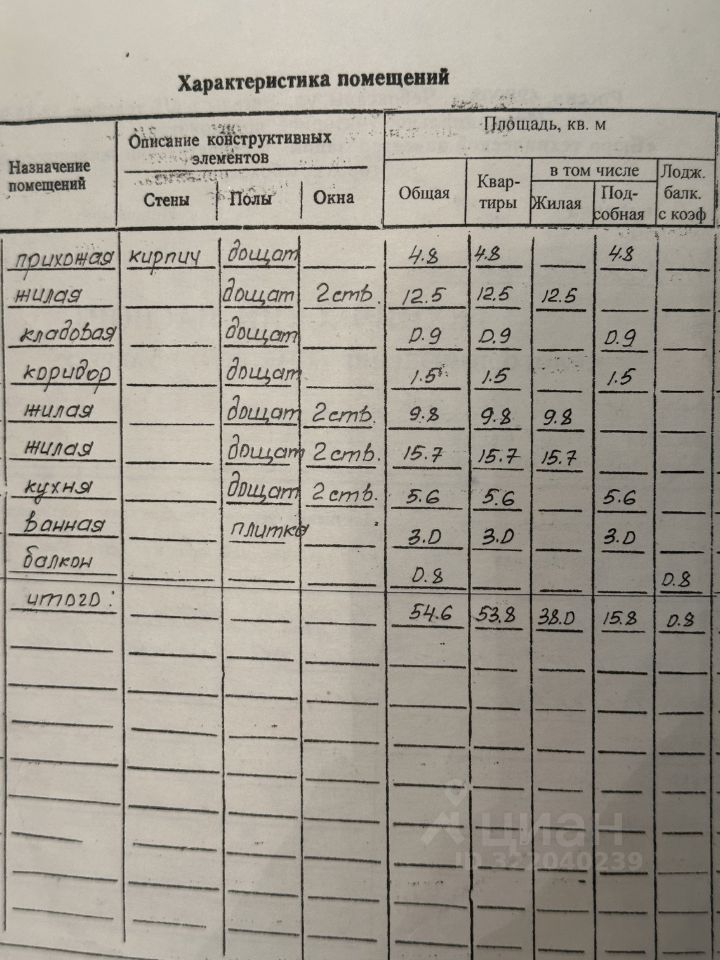 Характеристика помещений
Назначение помещений | Описание конструктивных элементов | Площадь, кв. м
Стены | Полы | Окна | Общая | Квар-тиры | в том числе | Лодж. балк. с коэф
Жилая | Под-собная
прихожая кирпич дощат 4.8 4.8 4.8
жилая дощат 2 ств. 12.5 12.5 12.5
кладовая дощат 0.9 0.9 0.9
коридор дощат 1.5 1.5 1.5
жилая дощат 2 ств. 9.8 9.8 9.8
жилая дощат 2 ств. 15.7 15.7 15.7
кухня дощат 2 ств. 5.6 5.6 5.6
ванная плитка 3.0 3.0 3.0
балкон 0.8 0.8
итого: 54.6 53.8 38.0 15.8 0.8
циан
ID 322040239